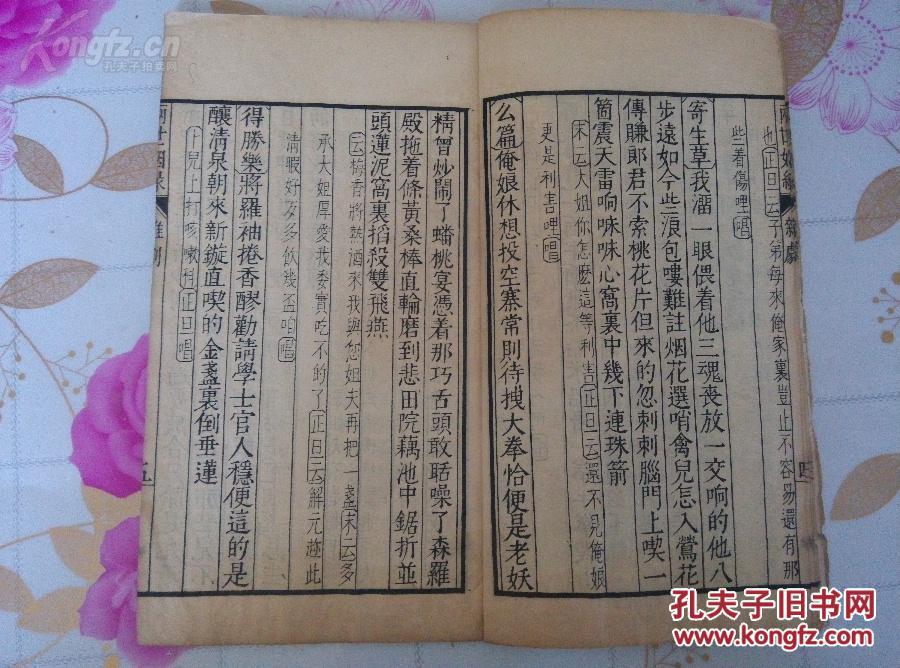 也正旦云子弟每來俺家裏豈止不容易還有那
些着傷哩唱
寄生草我溜一眼偎着他三魂喪放一交响的他八
步遠如今些浪包嘍難註烟花選哨禽兒怎入鶯花
傳賺郞君不索桃花片但來的忽刺刺腦門上喫一
箇震天雷响咮咮心窩裏中幾下連珠箭
末云大姐你怎麽這等利害正旦云還不見俺娘
更是利害哩唱
么篇俺娘休想投空寨常則待拽大拳恰便是老妖
精曾炒鬧了蟠桃宴憑着那巧舌頭敢聒噪了森羅
殿拖着條黃桑棒直輪磨到悲田院藕池中鋸折並
頭蓮泥窩裏搯殺雙飛燕
云梅香將熱酒來我與您姐夫再把一盞末云多
承大姐厚愛我委實吃不的了正旦云解元趂此
淸暇好歹多飲幾盃咱唱
得勝樂將羅袖捲香醪勸請學士官人穩便這的是
釀淸泉朝來新鏇直喫的金盞裏倒垂蓮
卜兒上打咳嗽科正旦唱
兩世姻緣
雜劇
四
五
Kongfz.cn
孔夫子拍卖网
孔夫子旧书网
www.kongfz.com